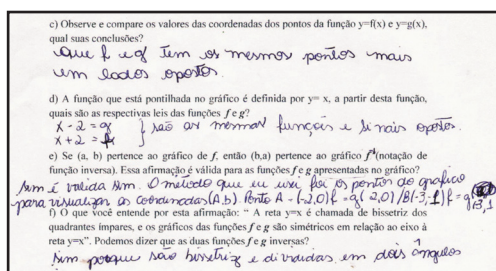 c) Observe e compare os valores das coordenadas dos pontos da função y=f(x) e y=g(x),
qual suas conclusões?
que f e g tem os mesmos pontos mais
em lados opostos.
d) A função que está pontilhada no gráfico é definida por y= x, a partir desta função,
quais são as respectivas leis das funções f e g?
x - 2 = g } são as mesmas funções e sinais opostos.
x + 2 = f
e) Se (a, b) pertence ao gráfico de f, então (b,a) pertence ao gráfico f⁻¹(notação de
função inversa). Essa afirmação é válida para as funções f e g apresentadas no gráfico?
sim é valida sim. O metodo que eu usei foi os pontos do grafico
para visualizar as coordenadas (A,b). Ponto A = (-2,0) f = g(-2,0) / B(-3,-1) f = g
f) O que você entende por esta afirmação: “ A reta y=x é chamada de bissetriz dos
quadrantes ímpares, e os gráficos das funções f e g são simétricos em relação ao eixo à
reta y=x”. Podemos dizer que as duas funções f e g inversas?
Sim porque são bissetriz e divididas em dois ângulos